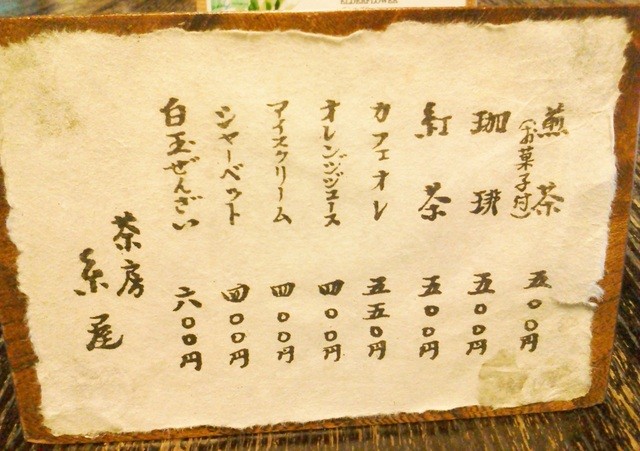 煎茶 五〇〇円
(お菓子付)
珈琲 五〇〇円
紅茶 五〇〇円
カフェオレ 五五〇円
オレンジジュース 四〇〇円
アイスクリーム 四〇〇円
シャーベット 四〇〇円
白玉ぜんざい 六〇〇円
茶房
糸屋